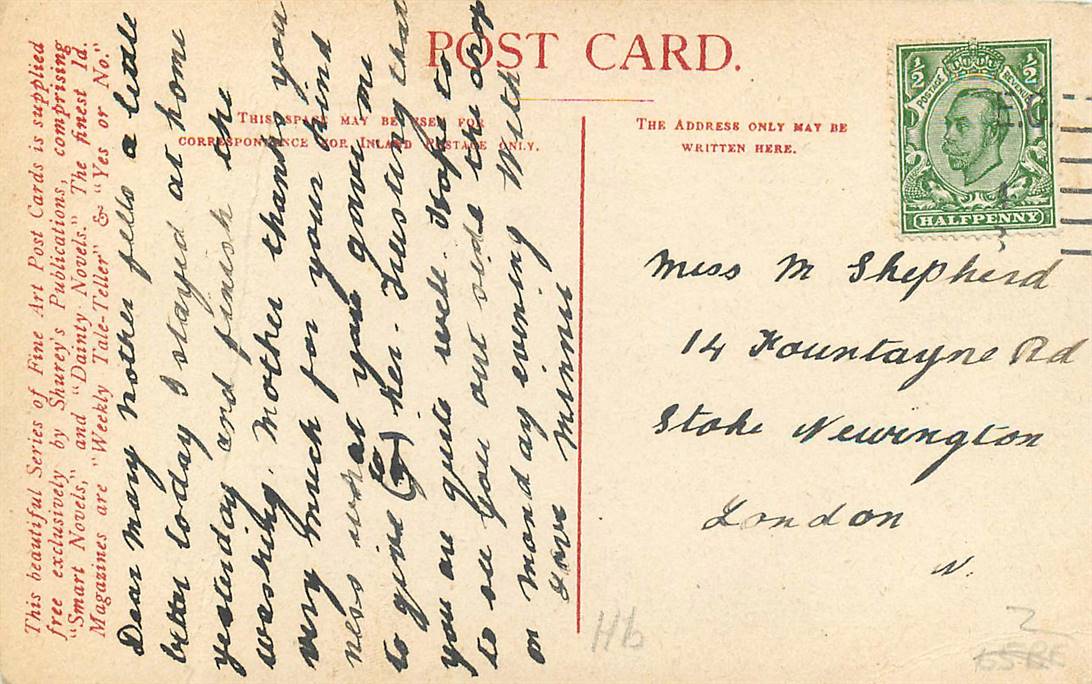 POST CARD.
This beautiful Series of Fine Art Post Cards is supplied
free exclusively by Shurey's Publications, comprising
"Smart Novels," and "Dainty Novels." The finest 1d.
Magazines are "Weekly Tale-Teller" & "Yes or No."
THIS SPACE MAY BE USED FOR
CORRESPONDENCE FOR INLAND POSTAGE ONLY.
THE ADDRESS ONLY MAY BE
WRITTEN HERE.
Dear Mary Mother fells a little
better today I stayed at home
yesterday and finish the
washing. Mother thanks you
very much for your kind
ness what you gave me
to give (to) her. Trusting that
you are quite well. Hope to
to see you out side the shop
on monday evening With
Love Minnie
½ POSTAGE REVENUE ½
HALFPENNY
Miss M Shepherd
14 Fountayne Rd
Stoke Newington
London
N.
H6
2